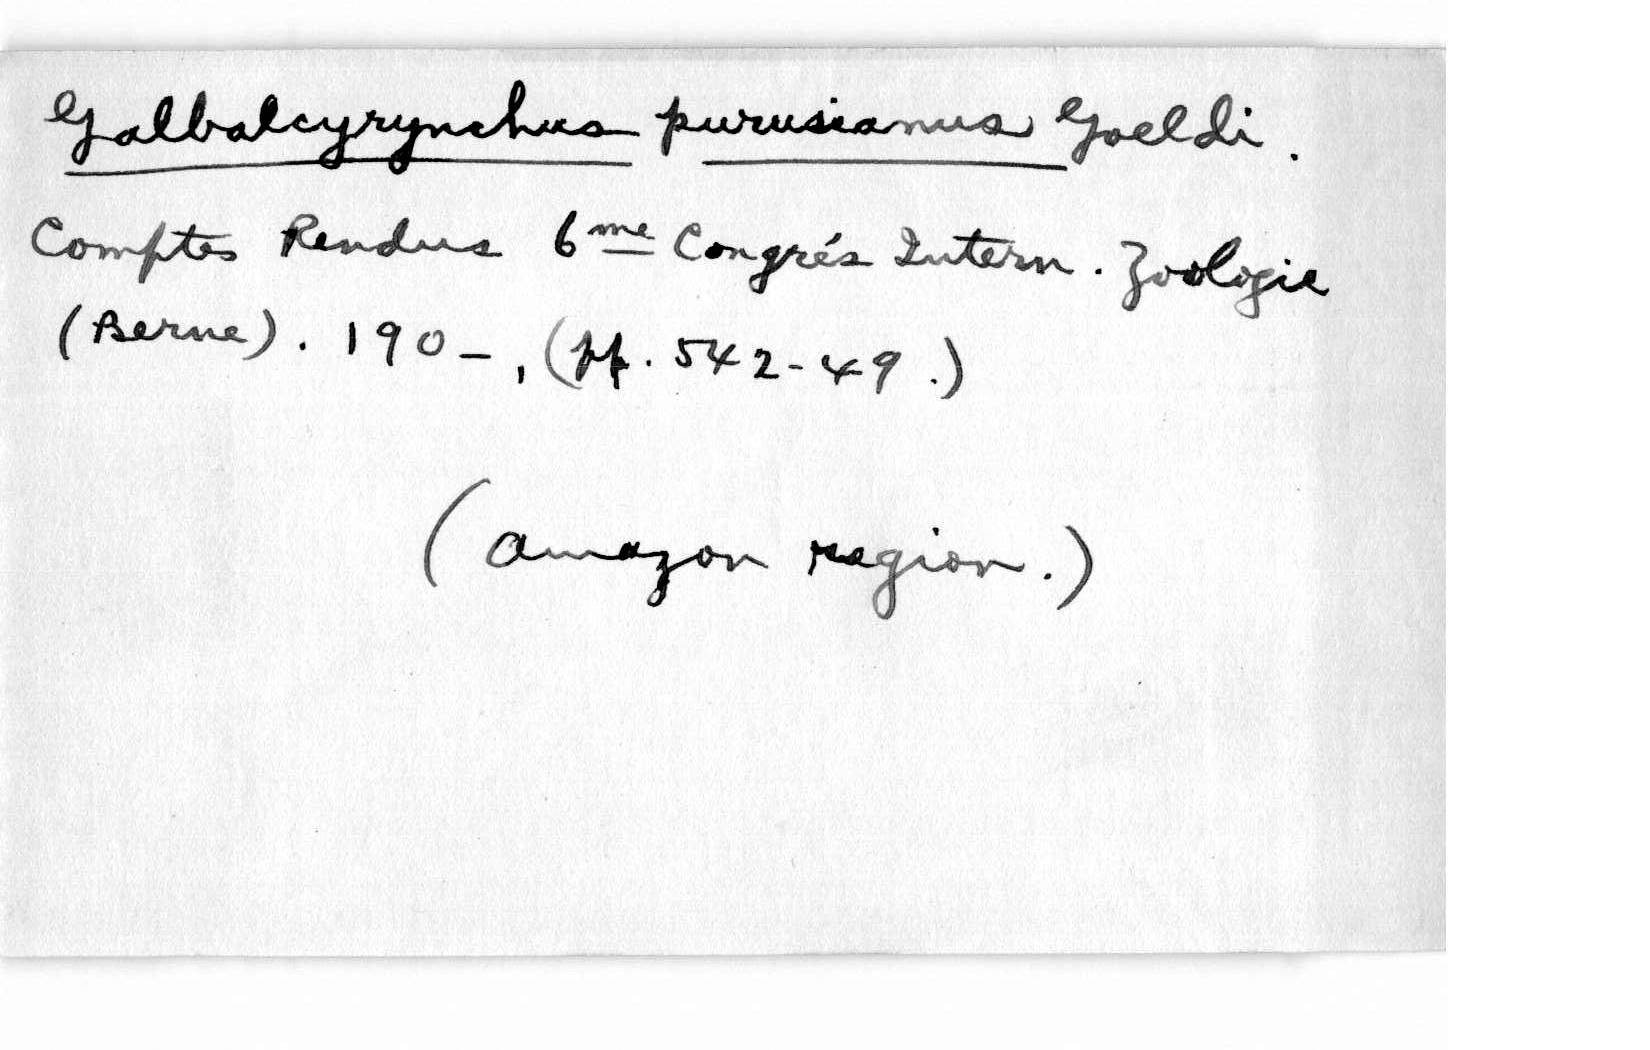 Galbalcyrynchus purusianus Goeldi.
Comptes Rendus 6me Congrés Intern. Zoologie
(Berne). 190-, (pp. 542-49.)
(Amazon region.)